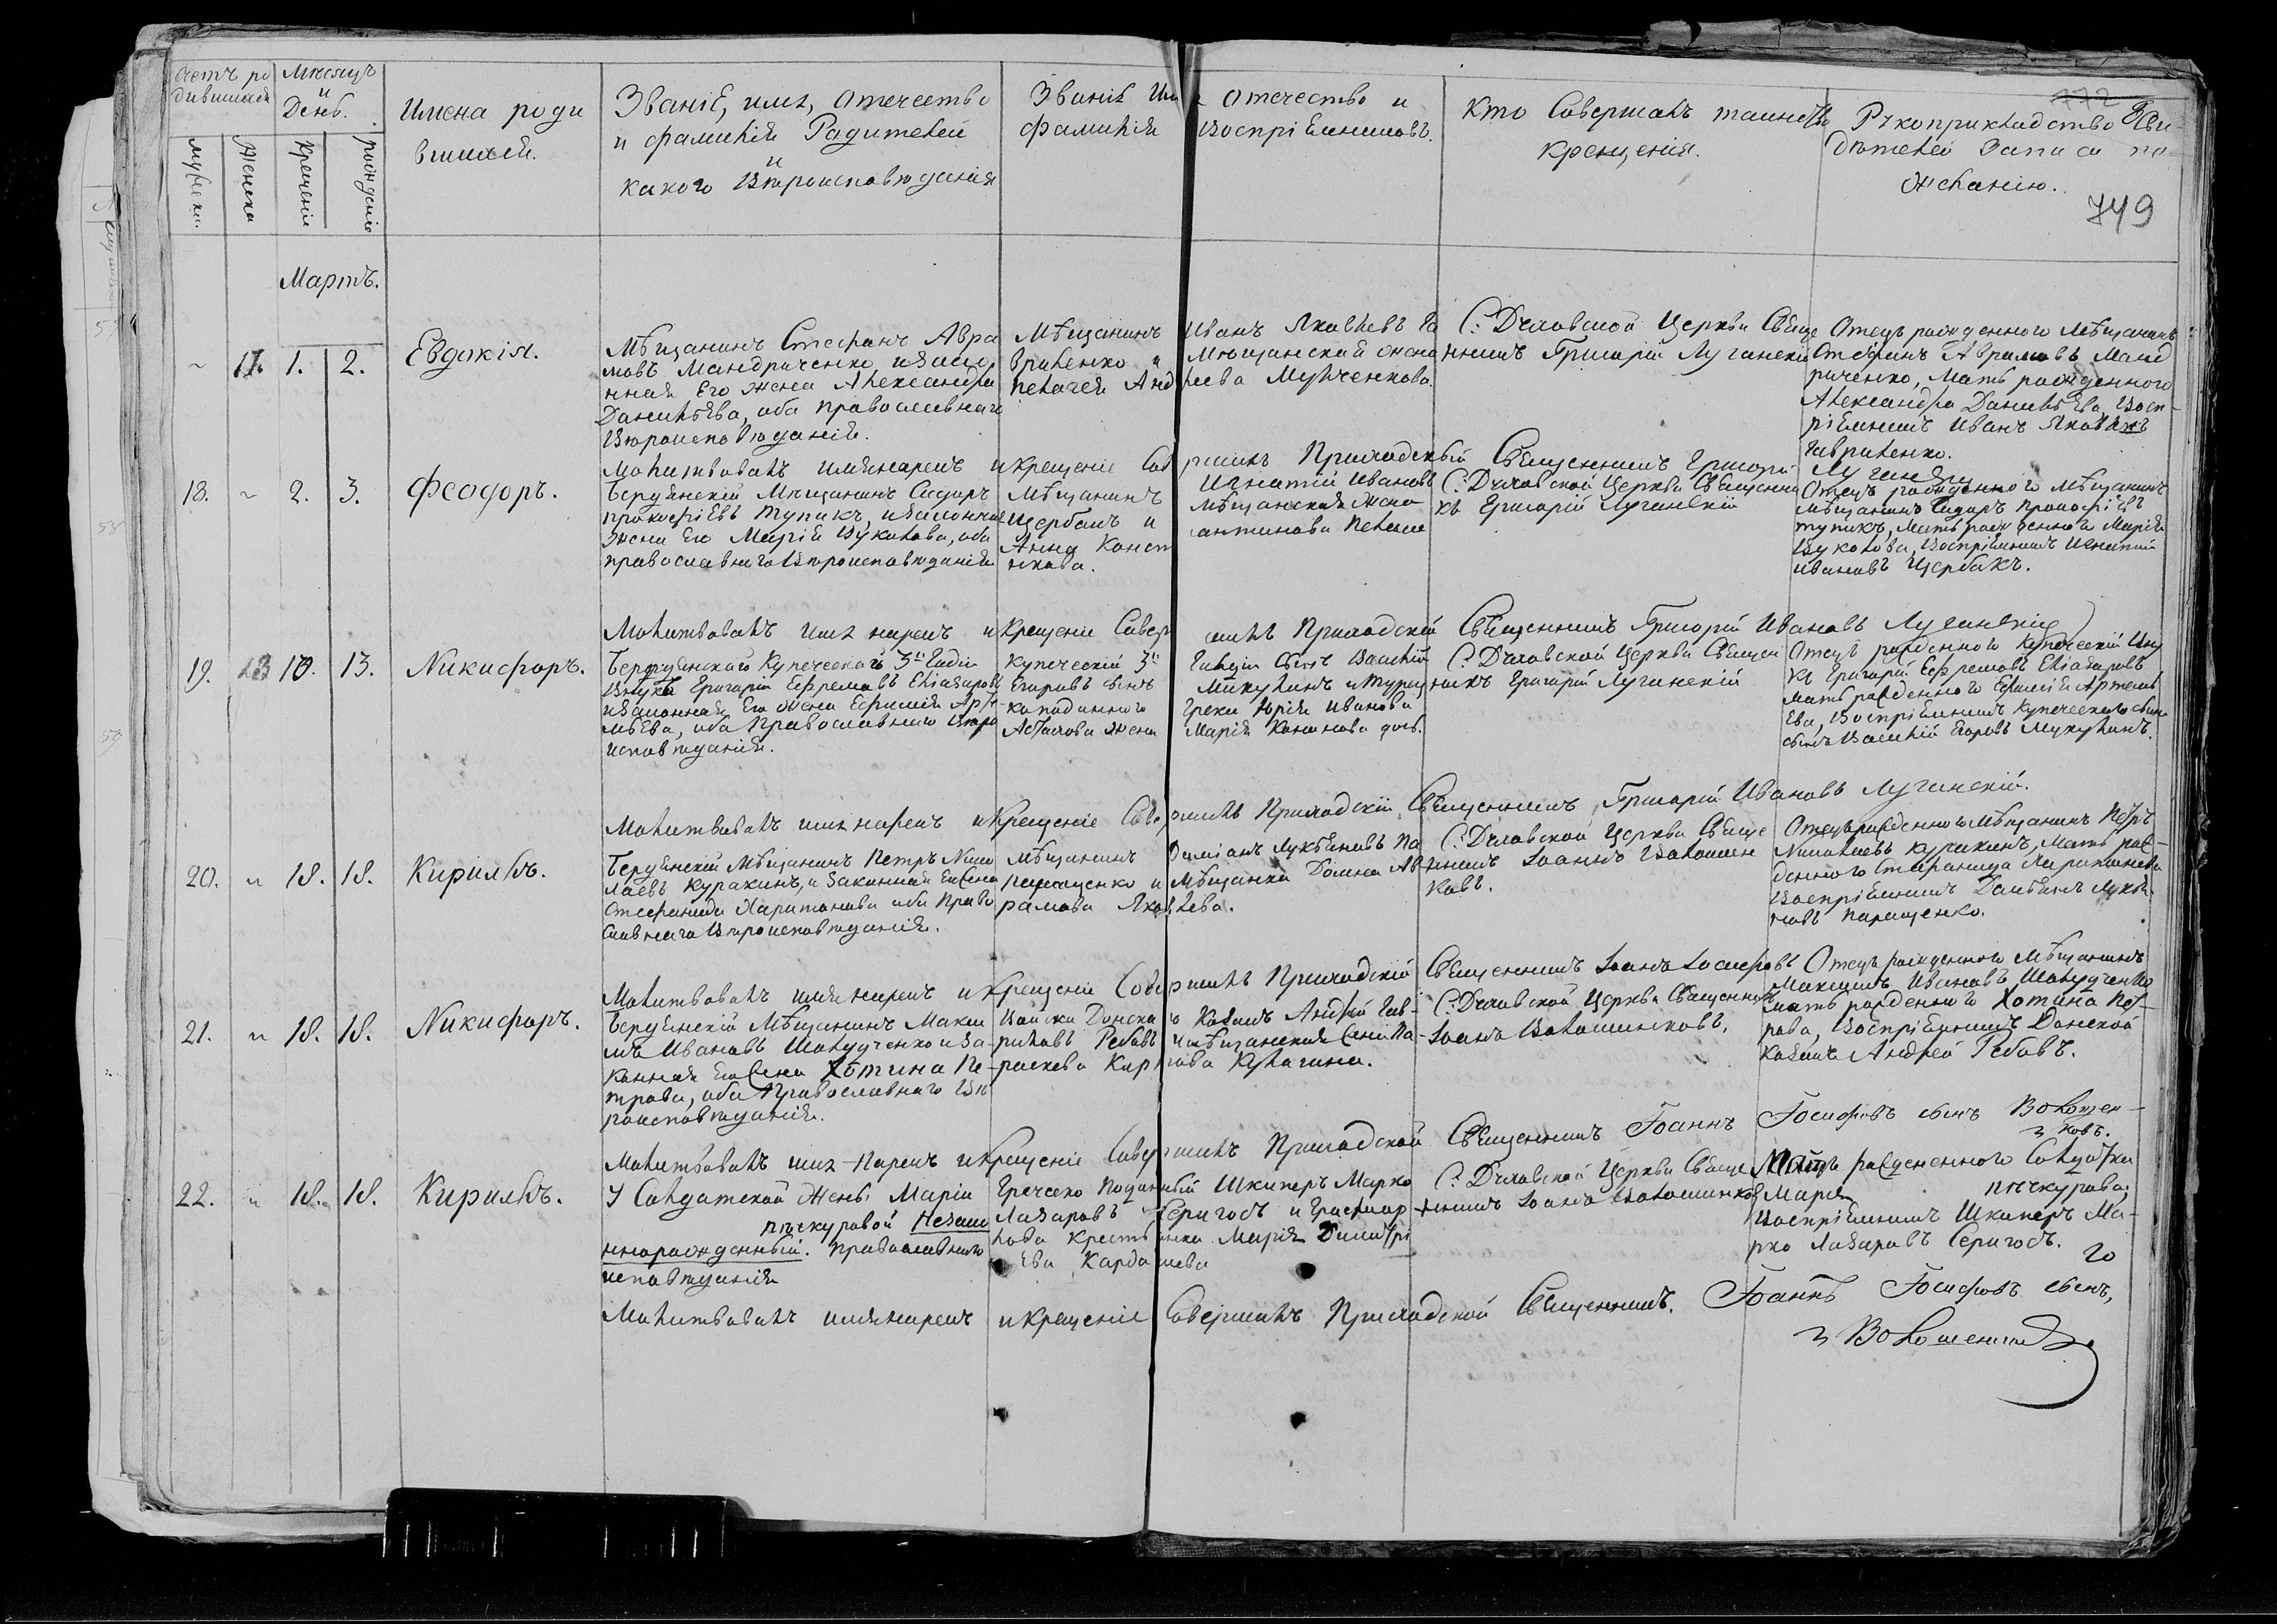 772
749
Счетъ ро
дившихся
Мѣсяцъ
и
День.
мужеска.
Женска
Крещенія
рожденія
Имена роди
вшихся.
Званіе, имя, отечество
и фамилія Родителей
и
какого Вѣроисповѣданія
Званіе Имя отечество и
фамилія Воспріемниковъ.
Кто Совершалъ таинство
Крещенія.
Рукоприкладство Сви-
дѣтелей Записи по
Желанію.
Мартъ.
17. 1. 2.
Евдокія.
Мѣщанинъ Стефанъ Авра
мовъ Мандриченко и зако
нная Его Жена Александра
Данильева, оба православнаго
Вѣроисповѣданія.
Мѣщанинъ Иванъ Яковлевъ Га
вриленко и Мѣщанская жена
Пелагея Андреева Мунченкова.
С: Дѣховской Церкви Свяще
нникъ Григорій Лучинскій
Отецъ рожденного Мѣщанинъ
Стефанъ Аврамовъ Манд
риченко, Мать рожденного
Александра Данильева, Восп-
ріемникъ Иванъ Яковлевъ
Гавриленко.
Молитвовалъ имя нарекъ и Крещеніе Совершилъ Приходскій Священникъ Григорій Лучинскій
18. 2. 3.
Феодоръ.
Бердянскій Мѣщанинъ Сидоръ
Прокофіевъ Тупикъ, и законная
Жена Его Марія Вуколова, оба
православнаго Вѣроисповѣданія
Мѣщанинъ Игнатій Ивановъ
Щербакъ и Мѣщанская Жена
Анна Константинова Пелеше
нкова.
С: Дѣховской Церкви Священни
къ Григорій Лучинскій
Отецъ рожденного Мѣщанинъ
Мѣщанинъ Сидоръ Прокофіевъ
Тупикъ, Мать рожденного Марія
Вуколова, Воспріемникъ Игнатій
Ивановъ Щербакъ.
Молитвовалъ имя нарекъ и Крещеніе Совершилъ Приходскій Священникъ Григорій Ивановъ Лучинскій
19. 10. 13.
Никифоръ.
Бердянскаго Купеческаго 3й Гилдіи
Внукъ Григорій Ефремовъ Еліазаровъ
и законная Его Жена Ефимія Арте
мьева, оба Православнаго Вѣро
исповѣданія.
Купеческій 3й Гильдіи Сынъ Василій
Егоровъ сынъ Микулинъ и Турец
коподданного Греки Юрія Иванова
Жена Марія Кононова дочь.
С: Дѣховской Церкви Священ
никъ Григорій Лучинскій
Отецъ рожденного Купеческій Вну
къ Григорій Ефремовъ Еліазаровъ
мать рожденного Ефимія Артемь
ева, Воспріемникъ Купеческаго сына
сынъ Василій Егоровъ Микулинъ.
Молитвовалъ имя нарекъ и Крещеніе Совершилъ Приходскій Священникъ Григорій Ивановъ Лучинскій.
20. 18. 18.
Кириллъ.
Бердянскій Мѣщанинъ Петръ Нико
лаевъ Куракинъ, и Законная Его Жена
Стефанида Харитонова оба Право
славнаго Вѣроисповѣданія.
Мѣщанинъ Даміанъ Лукьяновъ Па
ращенко и Мѣщанка Домна Ав
рамова Яковлева.
С: Дѣховской Церкви Свяще
нникъ Іоаннъ Волошин
ковъ.
Отецъ рожденного Мѣщанинъ Петръ
Николаевъ Куракинъ, Мать рож-
денного Стефанида Харитонова
Воспріемникъ Даміянъ Лукья
новъ Паращенко.
Молитвовалъ имя нарекъ и Крещеніе Совершилъ Приходскій Священникъ Іоаннъ Іосифовъ
21. 18. 18.
Никифоръ.
Бердянскій Мѣщанинъ Макси
мъ Ивановъ Шавудченко и За-
конная Его Жена Хотина Пе-
трова, оба Православнаго Вѣ
роисповѣданія.
Войска Донска го Казакъ Андрей Гав-
риловъ Ребовъ и Мѣщанская Жена Па-
раскева Карпова Кулагина.
С: Дѣховской Церкви Священникъ
Іоаннъ Волошинковъ.
Отецъ рожденного Мѣщанинъ
Максимъ Ивановъ Шавудченко
мать рожденного Хотина Пет-
рова, Воспріемникъ Донской
Казакъ Андрей Ребовъ.
Молитвовалъ имя нарекъ и Крещеніе Совершилъ Приходской Священникъ Іоаннъ Іосифовъ сынъ Волошен-
ковъ.
22. 18. 18.
Кириллъ.
У Солдатской Жены Маріи
Пѣчкуровой Незако
ннорожденный. Православнаго
исповѣданія
Греческо Подданный Шкиперъ Марко
Лазаровъ Серигосъ и
Крестьянка Марія Димитрі
ева Кардашева
С: Дѣховской Церкви Свяще
нникъ Іоаннъ Волошинковъ
Мать рожденного Солдатка
Марія Пѣчкурова,
Воспріемникъ Шкиперъ Ма-
рко Лазаровъ Серигосъ.
Молитвовалъ имя нарекъ и Крещеніе Совершилъ Приходской Священникъ. Іоаннъ Іосифовъ сынъ,
Волошенковъ.